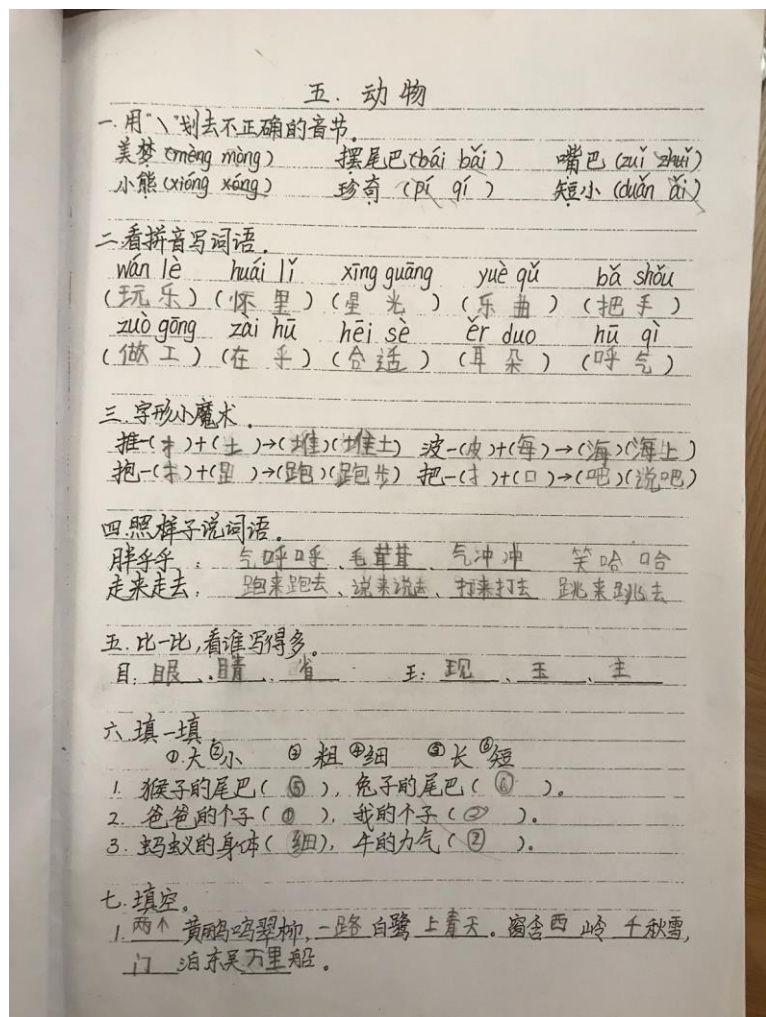 五.动物
一.用"\"划去不正确的音节。
美梦(mèng mòng) 摆尾巴(bái bǎi) 嘴巴(zuǐ zhuǐ)
小熊(xióng xóng) 珍奇(pí qí) 短小(duǎn ǎi)
二.看拼音写词语。
wán lè huái lǐ xīng guāng yuè qǔ bǎ shǒu
(玩乐)(怀里)(星光)(乐曲)(把手)
zuò gōng zài hū hēi sè ěr duo hū qì
(做工)(在乎)(合适)(耳朵)(呼气)
三.字形小魔术.
推-(扌)+(土)→(堆)(堆土) 波-(皮)+(每)→(海)(海上)
抱-(扌)+(𧾷)→(跑)(跑步) 把-(扌)+(口)→(吧)(说吧)
四.照样子说词语。
胖乎乎: 气呼呼、毛茸茸、气冲冲 笑哈哈
走来走去: 跑来跑去、说来说去、打来打去 跳来跳去
五.比一比,看谁写得多。
目:眼、睛、省 王:现、玉、主
六.填一填.
①大②小 ③粗④细 ⑤长⑥短
1.猴子的尾巴(⑤),兔子的尾巴(⑥)。
2.爸爸的个子(①),我的个子(②)。
3.蚂蚁的身体(细),牛的力气(②)。
七.填空。
1.两个黄鹂鸣翠柳,一路白鹭上青天。窗含西岭千秋雪,
门泊东吴万里船。